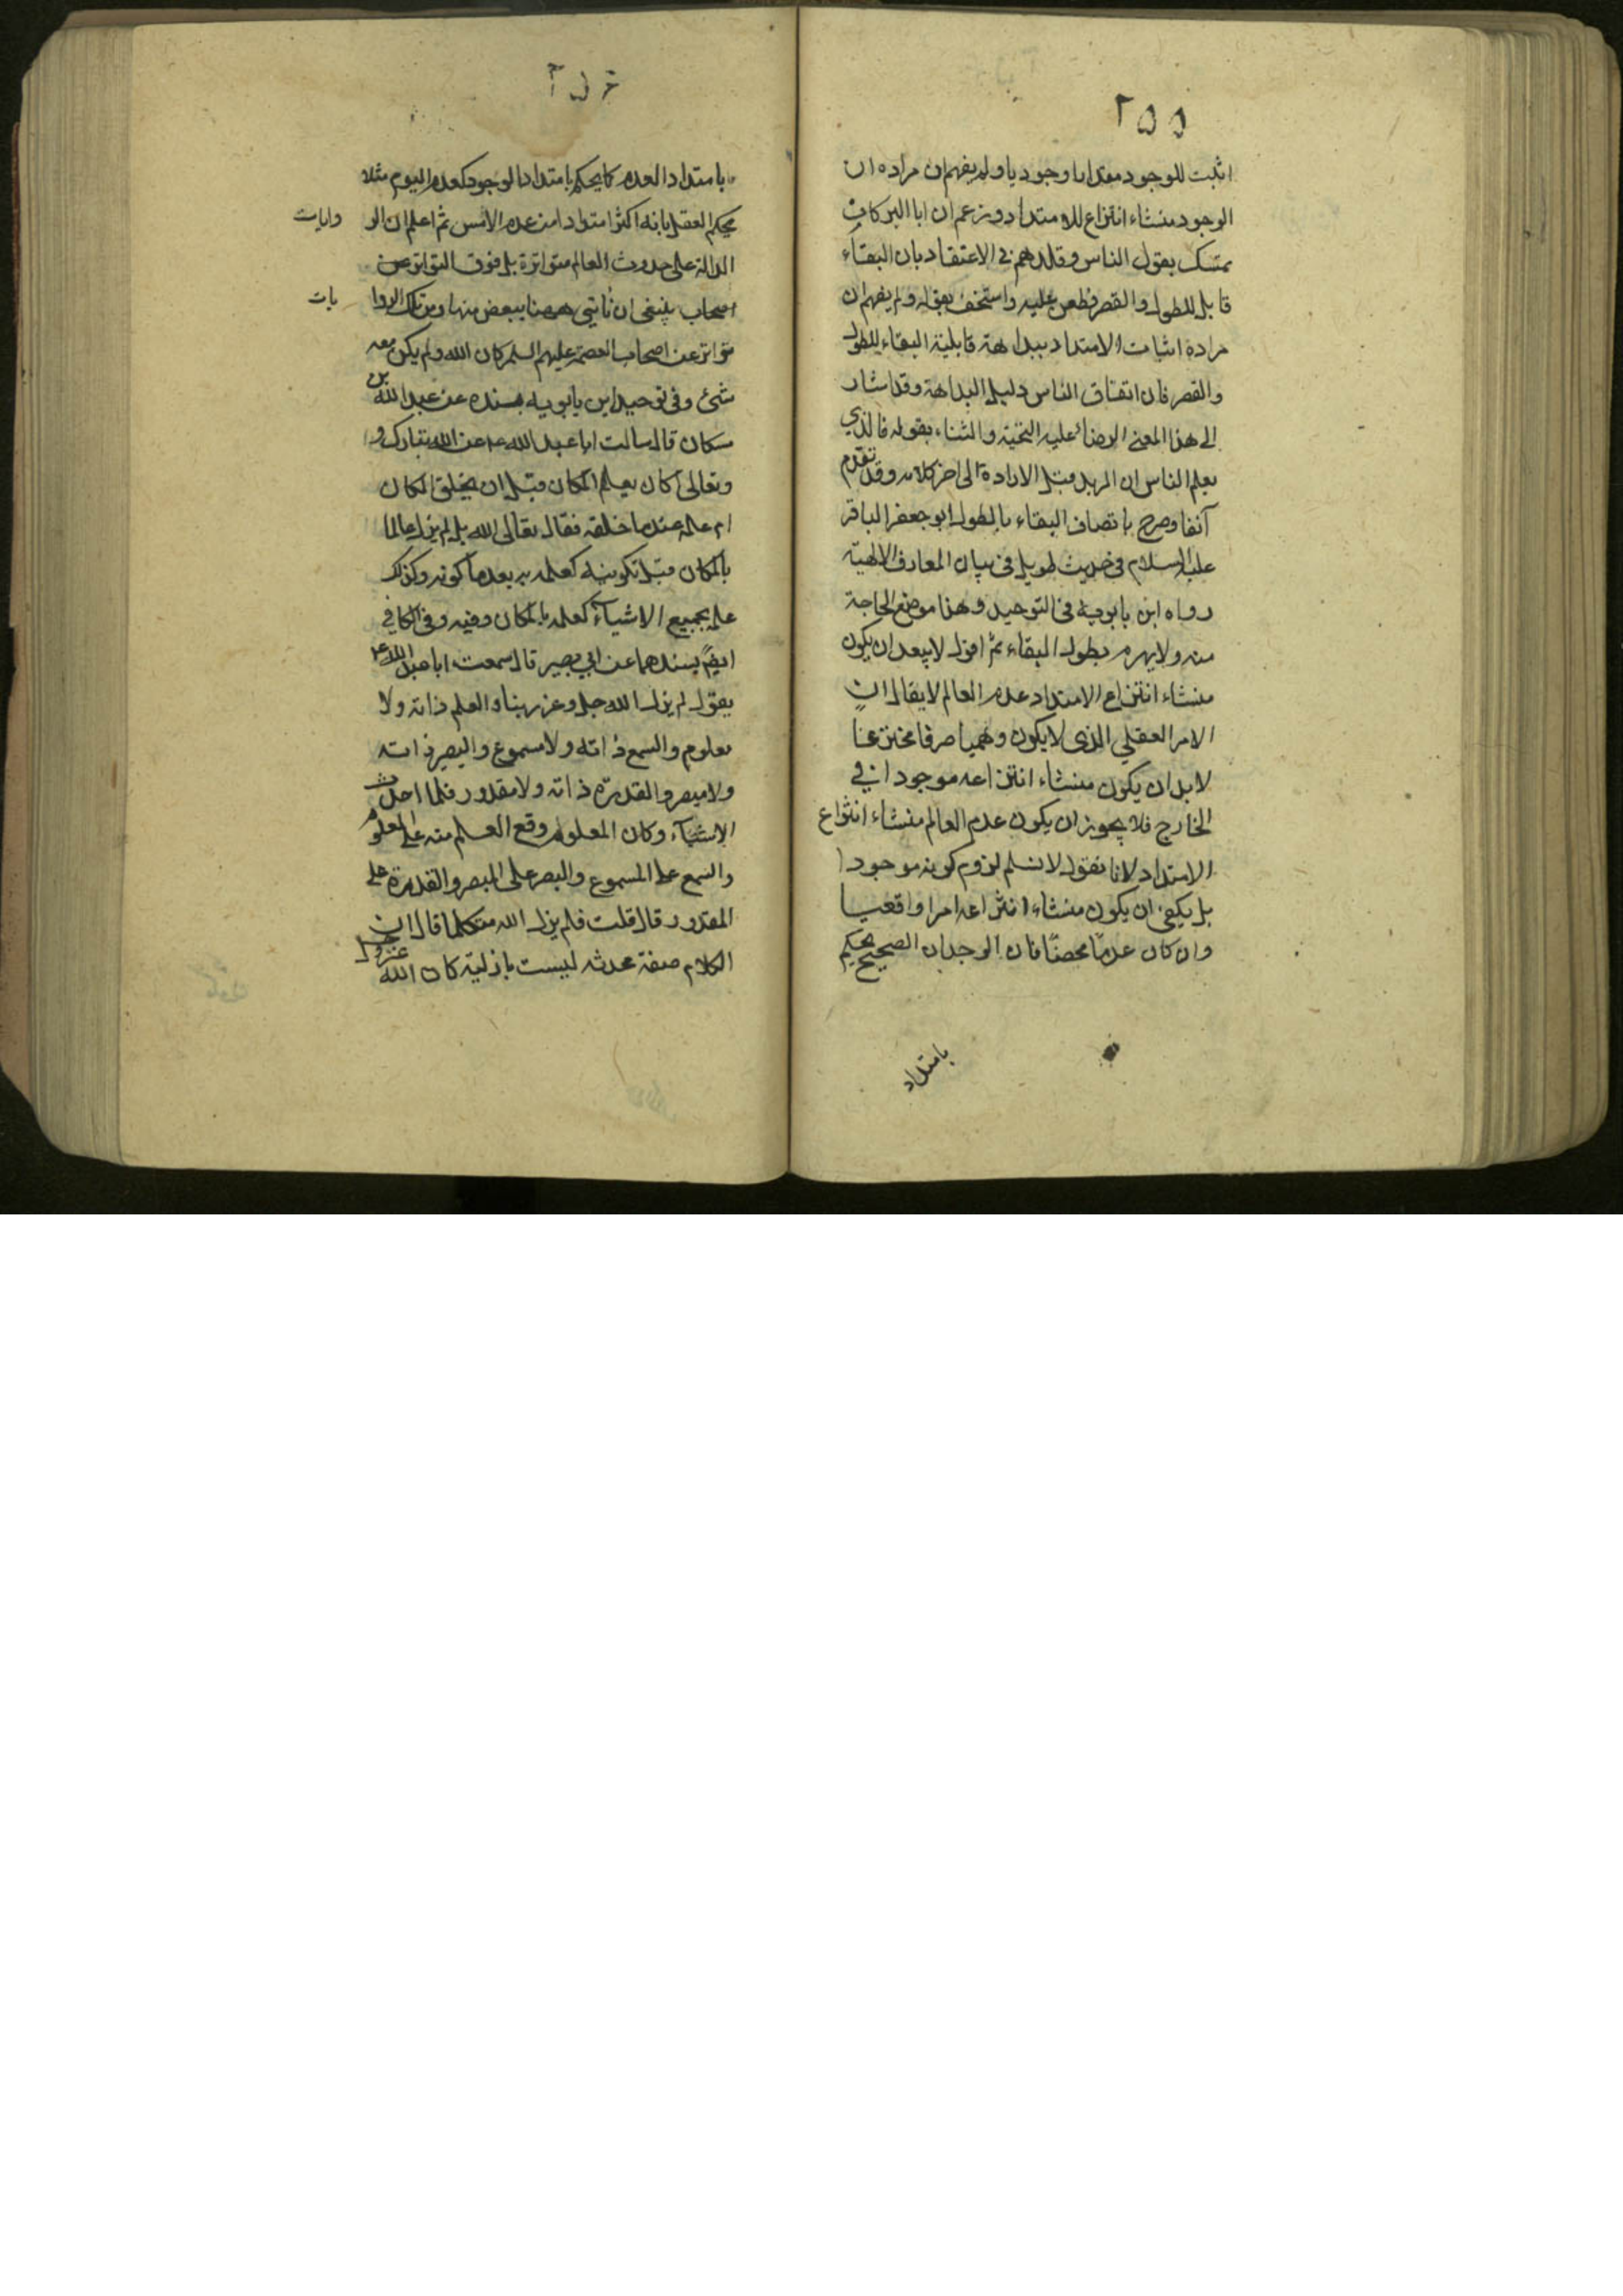 ٢٥٥
اثبت للوجود مقدارا وجوديا ولم يفهم ان مراده ان
الوجود منشاء انتزاع للامتداد وزعم ان ابا البركات
تمسك بقول الناس وقلدهم في الاعتقاد بان البقاء
قابل للطول والقصر فطعن عليه واستخف بقوله ولم يفهم ان
مراده اثبات الامتداد ببداهة قابلية البقاء للطول
والقصر فان اتفاق الناس دليل البداهة وقد اشار
الى هذا المعنى الرضا عليه التحية والثناء بقوله فالذي
يعلم الناس ان المريد قبل الارادة الى اخر كلامه وقد تقدم
آنفا وصرح باتصاف البقاء بالطول ابو جعفر الباقر
عليه السلام في حديث طويل في بيان المعارف الالهية
رواه ابن بابويه في التوحيد وهذا موضع الحاجة
منه ولا يهرم بطول البقاء ثم اقول لا يبعد ان يكون
منشاء انتزاع الامتداد عدم العالم لا يقال ان
الامر العقلي الذي لا يكون وهميا صرفا مخترعنا
لا بد ان يكون منشاء انتزاعه موجودا في
الخارج فلا يجوز ان يكون عدم العالم منشاء انتزاع
الامتداد لانا نقول لا نسلم لزوم كونه موجودا
بل يكفي ان يكون منشاء انتزاعه امرا واقعيا
وان كان عدمًا محضًا فان الوجدان الصحيح يحكم
بامتداد
بامتداد العدم كما يحكم بامتداد الوجود كعدم اليوم مثلا
يحكم العقل بانه اكثر امتداد امن عدم الامس ثم اعلم ان الر وايات
الدالة على حدوث العالم متواترة بل فوق التواتر عن
اصحاب ينبغي ان ناتي ههنا ببعض منها ومن تلك الروا يات
تواتر عن اصحاب العصمة عليهم السلم كان الله ولم يكن معه
شئ وفي توحيد ابن بابويه بسنده عن عبد الله بن
مسكان قال سالت ابا عبد الله ع عن الله تبارك و
وتعالى اكان يعلم المكان قبل ان يخلق المكان
ام علمه عندما خلقه فقال تعالى الله بل لم يزل عالما
بالمكان قبل تكوينه كعلمه به بعد ما كونه وكذلك
علمه بجميع الاشياء كعلمه بالمكان وفيه وفي الكافي
ايضً بسندهما عن ابي بصير قال سمعت ابا عبد الله ع
يقول لم يزل الله جل وعز ربنا والعلم ذاته ولا
معلوم والسمع ذاته ولا مسموع والبصر ذاته
ولا مبصر والقدرة ذاته ولا مقدور فلما احدث
الاشياء وكان المعلوم وقع العلم منه على المعلوم
والسمع على المسموع والبصر على المبصر والقدرة على
المقدور قال قلت فلم يزل الله متكلما قال ان
الكلام صفة محدثه ليست بازلية كان الله عز وجل